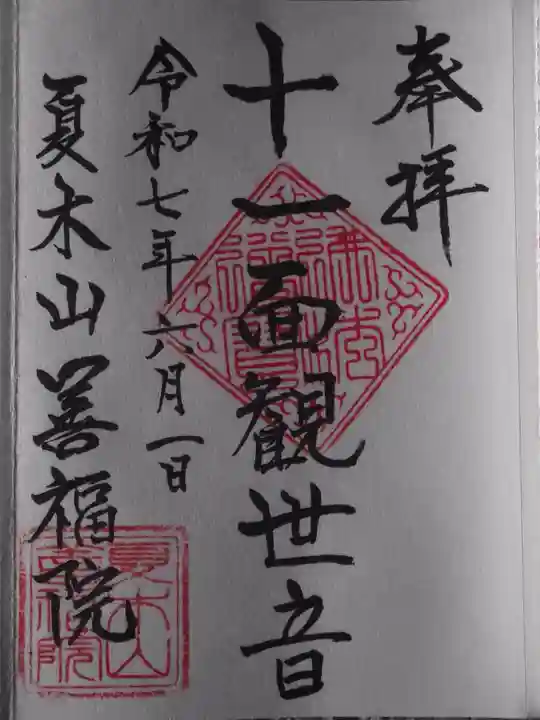 奉拝
十一面観世音
令和七年六月一日
夏木山善福院
夏木山
善福院